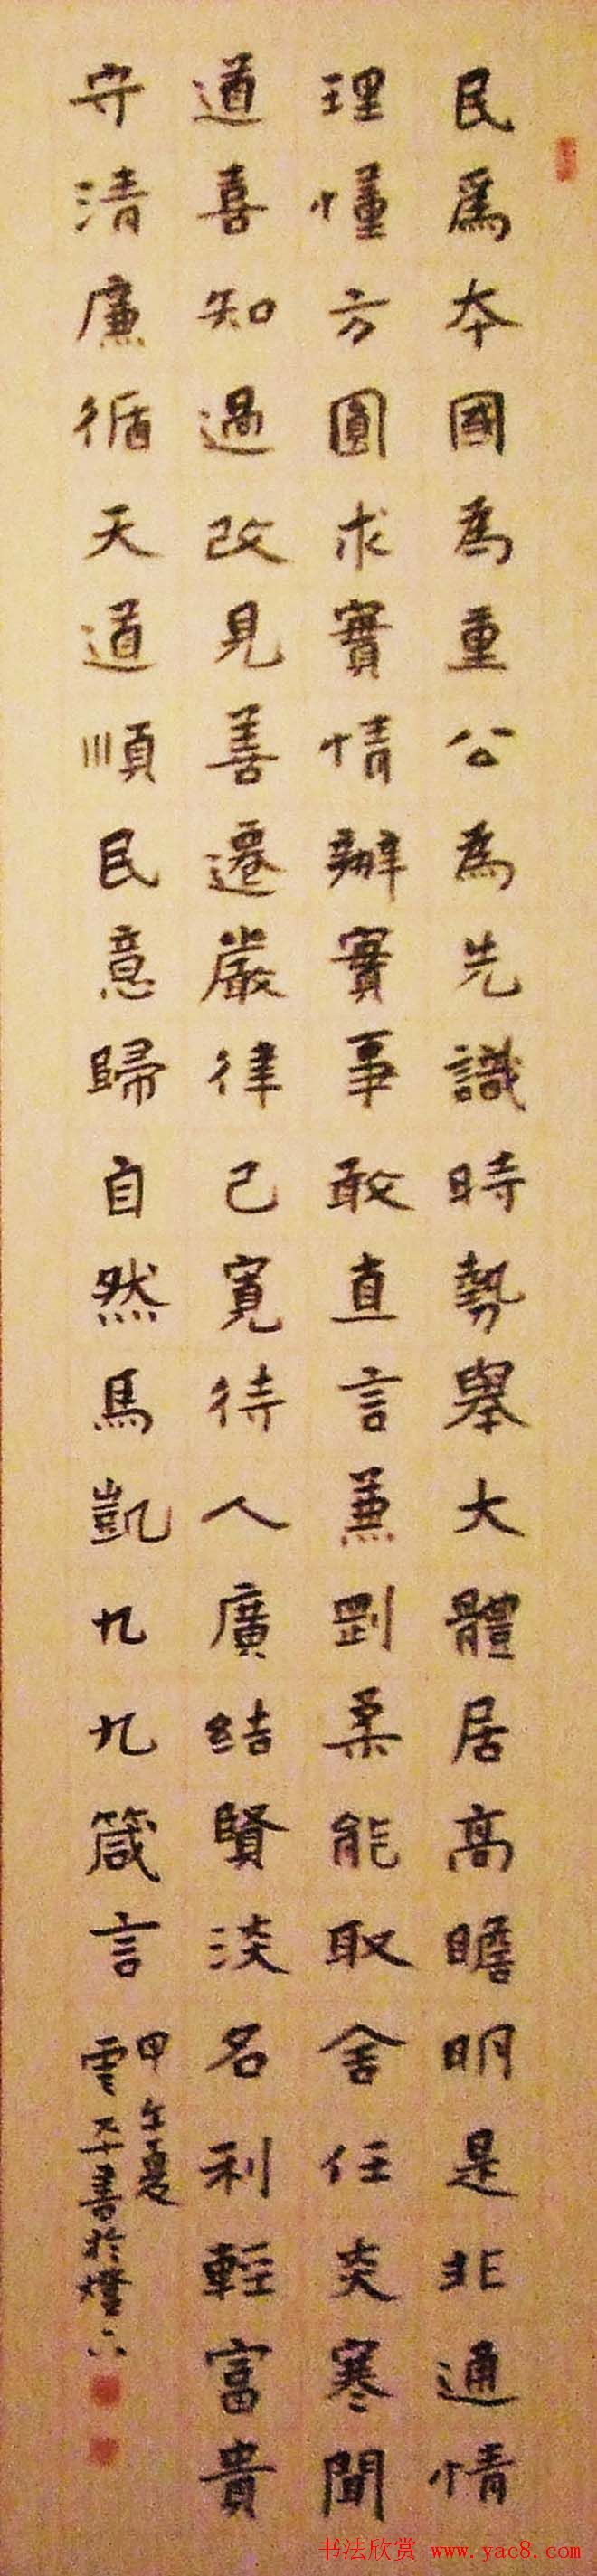 民爲本國為重公為先識時勢舉大體居高瞻明是非通情
理懂方圓求實情辦實事敢直言兼剛柔能取舍任炎寒聞
道喜知過改見善遷嚴律己寬待人廣结賢淡名利輕富貴
守清廉循天道順民意歸自然馬凱九九箴言
甲午夏
書於
书法欣赏 www.yac8.com